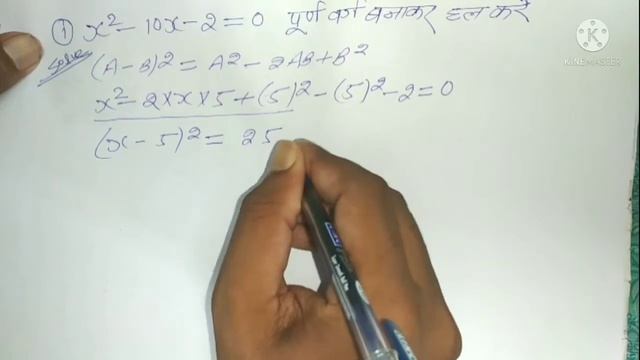 ① x² - 10x - 2 = 0 पूर्ण वर्ग बनाकर हल करें
Solve (A - B)² = A² - 2AB + B²
x² - 2×x×5 + (5)² - (5)² - 2 = 0
(x - 5)² = 25
KINEMASTER